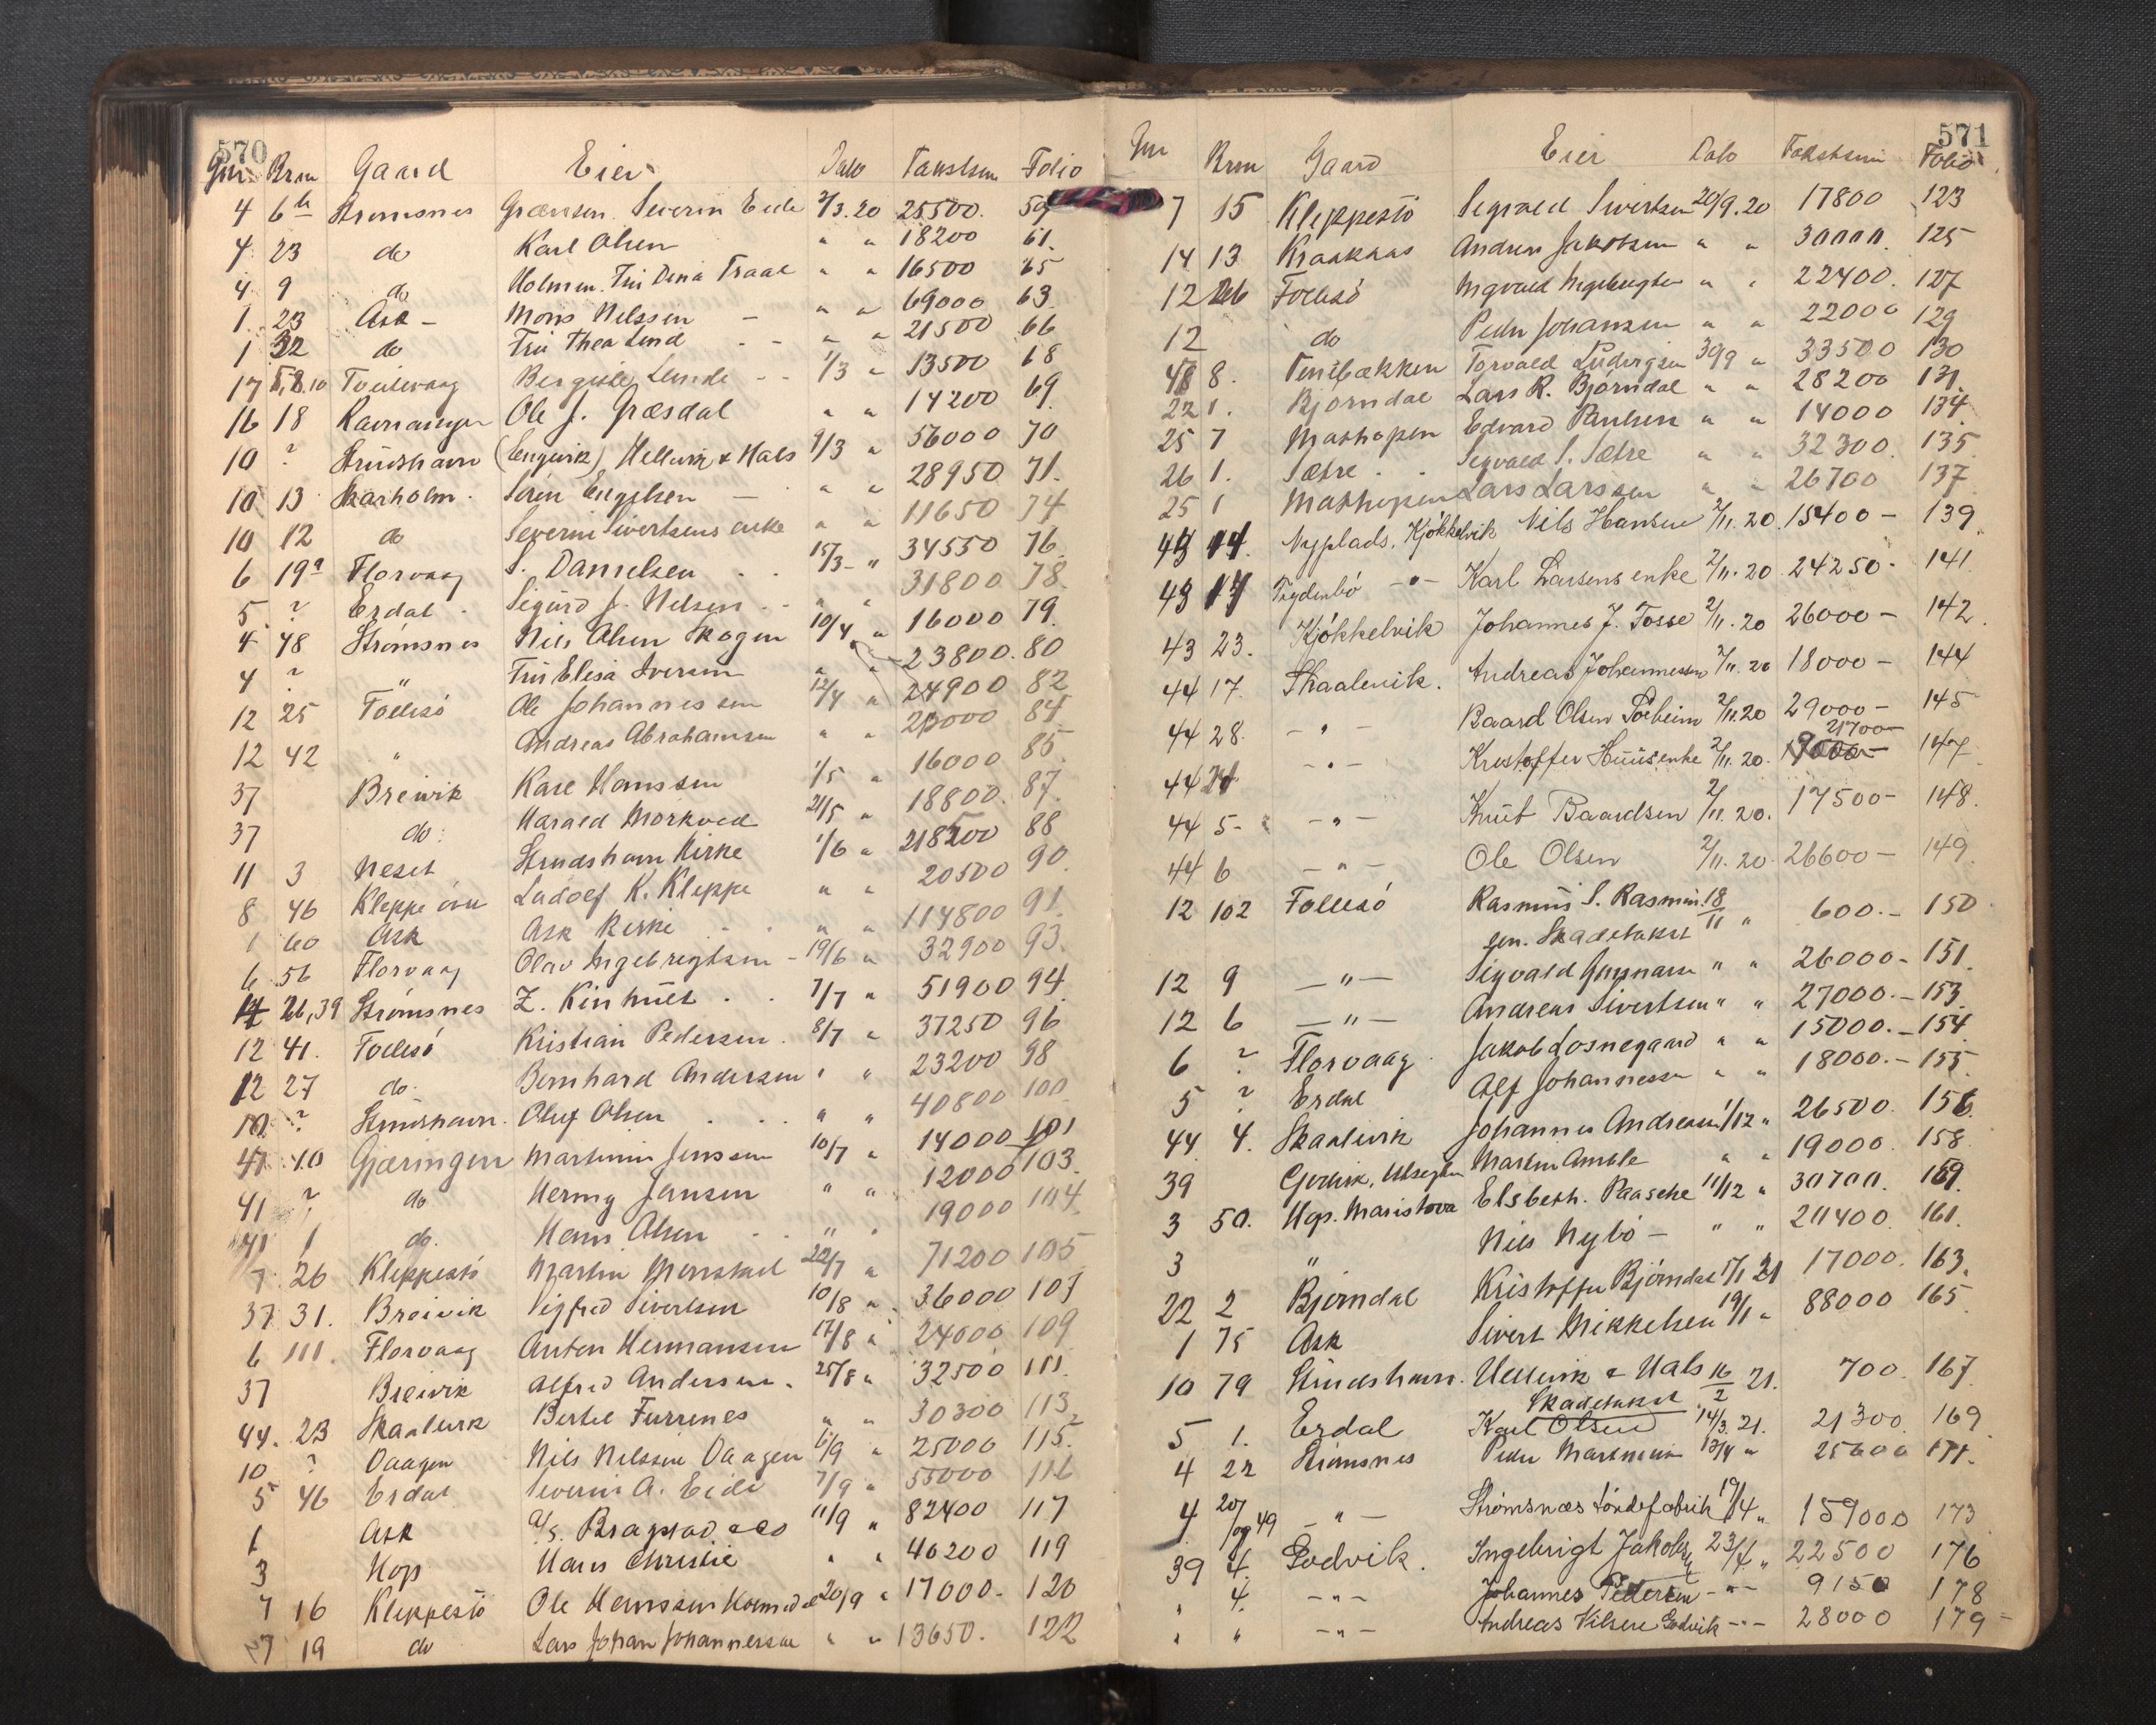 570
Gnr Brnr Gaard Eier Dato Takstsum Folio
4 6 b Strømsnes Grænsen Severin Eide 2/3.20 25500. 59
4 23 do Karl Olsen " " 18200 61.
4 9 do Holmen. Fru Dina Traae " " 16500 65
1 23 Ask - Mons Nilssen - " " 69000 63
1 32 do Fru Thea Lind - - " " 21500 66
17 5,8.10 Tveitevaag Bergitte Lunde - - 1/3 " 13500 68
16 18 Ravnanger Ole J. Græsdal " " 14200 69
10 ? Strudshavn (Engevik) Hellevik & Hals 9/3 " 56000 70
10 13 Skarholm. Sørin Engelsen - " " 28950 71.
10 12 do Severin Sivertsens enke " " 11650 74
6 19a Florvaag S. Danielsen . . 15/3- " 34550 76
5 ? Erdal Sigurd J. Nilsen . . " " 31800 78
4 48 Strømsnes Nils Olsen Skogen 10/4 " 16000 79.
4 ? " Fru Elisa Iversen " " 23800. 80
12 25 Follesø Ole Johannessen 12/4 " 24900 82
12 42 " Andreas Abrahamsen " " 20000 84
37 Breivik Kare Hanssen 1/5 " 16000 85
37 do. Harald Morkved 21/5 " 18800. 87.
11 3 Neset Strudshavn Kirke 1/6 " 218500 88
8 46 Kleppe øvre Ladolf K. Kleppe " " 20500 90.
1 60 Ask Ask Kirke . . " " 114800 91
6 56 Florvaag Olav Ingebregtsen - 19/6 " 32900 93.
14 26,39 Strømsnes Z. Kinhult . . 7/7 " 51900 94
12 41. Follesø Kristian Pedersen. 8/7 " 37250 96
12 27 do. Bernhard Andersen " " 23200 98
10 ? Strudshavn. Oluf Olsen . . . " " 40800 100
41 10 Gjæringen Martinus Jenssen 10/7 " 14000 101
41 ? do Herny Jansen " " 12000 103.
41 1 do. Hans Olsen . . " " 19000 104
7 26 Kleppestø Martin Monstad 22/7 " 71200 105
37 31. Breivik Sigfred Sivertsen 10/8 " 36000 107
6 111. Florvaag Anton Hermansen 17/8 " 24000 109
37 Breivik Alfred Andersen. 25/8 " 32500 111
44. 23 Skaalevik Bertel Furrenes " " 30300 113
10 ? Vaagen Nils Nilssen Vaagen 6/9 " 25000 115.
5 46 Erdal Severin A. Eide 7/9 " 55000 116
1 Ask A/S. Bragstad & Co 11/9 " 82400 117
3 Hop Hans Christie " " 40200 119
7 16 Kleppestø Ole Hanssen 20/9 " 17000. 120
7 19 do Lars Johan Johannessen " " 13650. 122
571
Gnr Brnr Gaard Eier Dato Takstsum Folio
7 15 Kleppestø Sigvald Sivertsen 20/9.20 17800 123
14 13 Kraakaas Andreas Jakobsen " " 30000. 125
12 26 Follesø Ingvald Ingebrigtsen " " 22400. 127
12 do Peder Johansen " " 22000 129
48 8. Tenebækken Torvald Ludvigsen 30/9 " 33500 130
22 1. Bjørndal Lars R. Bjørndal " " 28200 131.
25 7 Mathopen Edvard Paulsen " " 14000 134.
26 1. Sætre . . Sigvald S. Sætre " " 32300. 135
25 1 Mathopen Lars Larssen " " 26700 137
43 14. Nyplads. Kjøkkelvik Nils Hansen 2/11.20. 15400 - 139.
43 17 -"- Karl Larsens enke 2/11.20 24250 - 141
43 23. Kjøkkelvik Johannes J. Tosse 2/11.20 26000 - 142.
44 17. Skaalevik. Andreas Johannessen 2/11.20 18000 - 144
44 28. -"- Baard Olsen 2/11.20 29000 - 145
21700 -
44 24. -"- Kristoffer Huus enke 2/11.20. 147
44 5- -"- Knut Baardsen 2/11.20. 17500 - 148.
44 6 -"- Ole Olsen 2/11.20. 26600 - 149.
12 102 Follesø Rasmus S. Rasmus. 18/11 " 600. - 150
sen. Skadetakst
12 9 -"- Sigvald Gunnarsen " " 26000 - 151.
12 6 -"- Andreas Sivertsen " " 27000. - 153
6 ? Florvaag. Jakob Losnegaard " " 15000. - 154
5 ? Erdal Alf Johannessen " " 18000. - 155
44 4. Skaalevik Johannes Andreassen 1/12 " 26500. 156.
39 Godvik, Martin Amble " " 19000. 158
3 50. Hop. Maristova Elsbeth. Paasche 11/12 " 30700. 159.
3 " Nils Nybø - " " 20400. 161.
22 2 Bjørndal Kristoffer Bjørndal 17/1 21 17000. 163.
1 75 Ask Sivert Mikkelsen 19/1 " 88000 165
10 79 Strudshavn. Hellevik & Hals 16/2 21. 700. 167
Skadetakst
5 1. Erdal Karl Olsen 14/3.21. 21300. 169
4 22 Strømsnes Peder Martinsen 13/4 " 25600 171.
4 20/og 49 -"- Strømsnæs tøndefabrik 19/4 " 159000 173
39 4. Godvik. Ingebrigt Jakobsen 23/4 " 22500 176
" 4. -"- Johannes Pedersen -"- 9150 178
" " -"- Andreas Nilsen Godvik -"- 28000 179 -